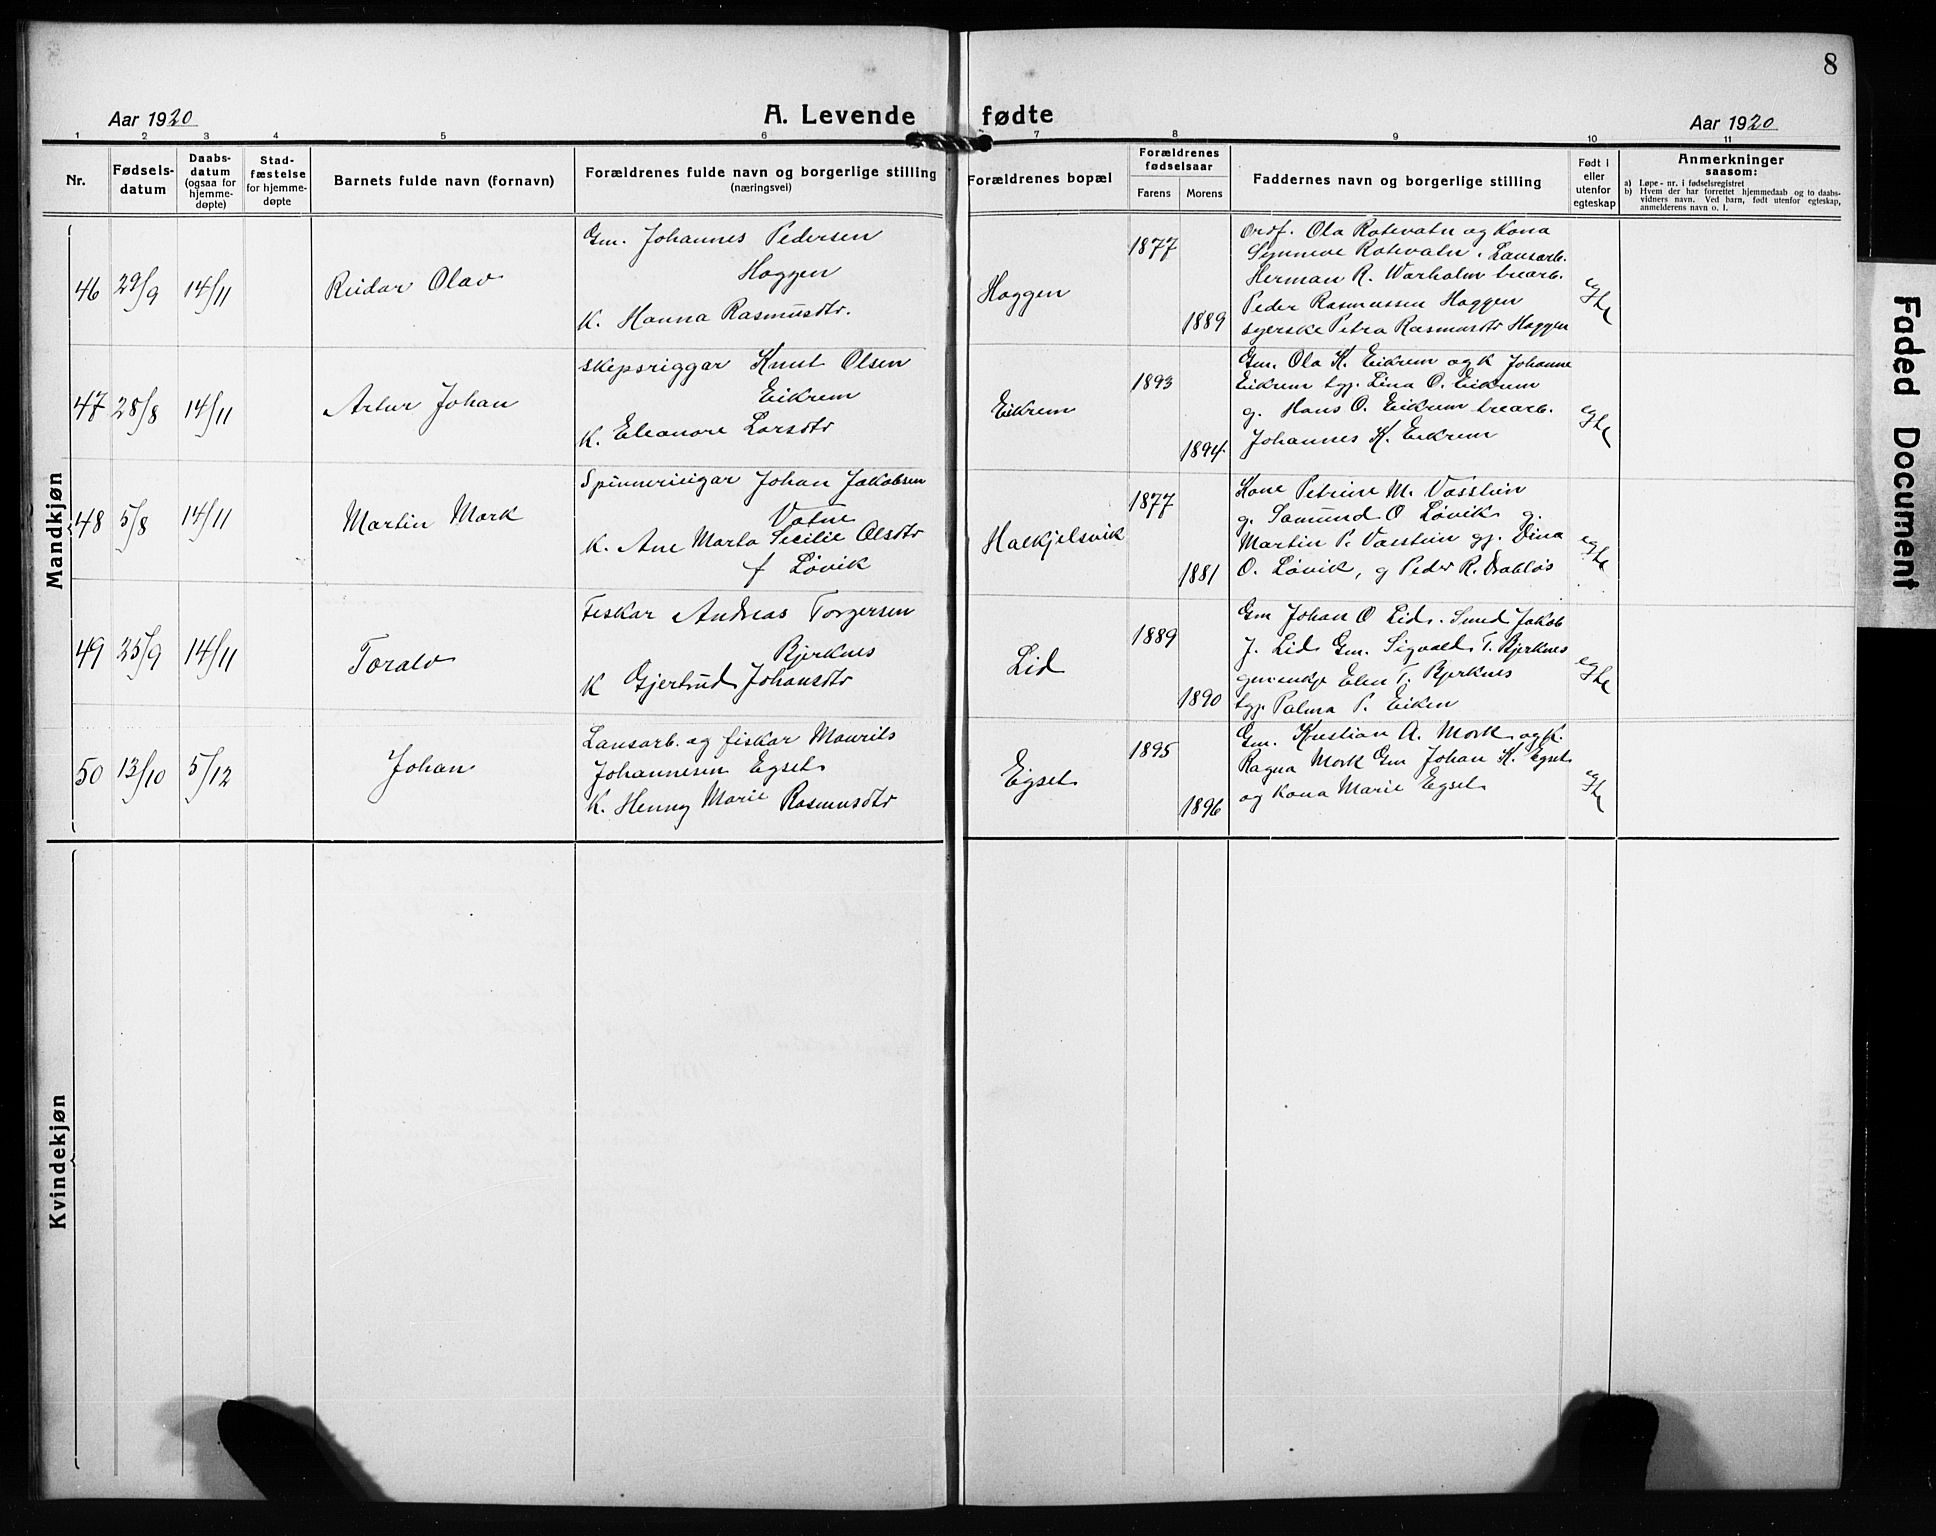 8
Aar 1920
A. Levende fødte
Aar 1920
1 2 3 4 5 6 7 8 9 10 11
Nr.
Fødsels-
datum
Daabs-
datum
(ogsaa for
hjemme-
døpte)
Stad-
fæstelse
for hjemme-
døpte
Barnets fulde navn (fornavn)
Forældrenes fulde navn og borgerlige stilling
(næringsvei)
Forældrenes bopæl
Forældrenes
fødselsaar
Farens Morens
Faddernes navn og borgerlige stilling
Født i
eller
utenfor
egteskap
Anmerkninger
saasom:
a) Løpe-nr. i fødselsregistret
b) Hvem der har forrettet hjemmedaab og to daabs-
vidners navn. Ved barn, født utenfor egteskap,
anmelderens navn o. l.
Mandkjøn
46 29/9 14/11
Reidar Olav
Gm. Johannes Pedersen
Haggen
K. Hanna Rasmusdtr.
Haggen
1877
1889
Ordf. Ola Rotevatn og Kona
Synneve Rotevatn. Lausarb.
Herman R. Warholm trearb.
Peder Rasmussen Haggen
syerske Petra Rasmusdtr Haggen
egte
47 28/8 14/11
Artur Johan
skipsriggar Knut Olsen
Eikrem
K. Eleanore Larsdtr
Eikrem
1893
1894
Gm. Ola K. Eikrem og k Johanne
Eikrem tgp. Lina O. Eikrem
g. Hans O. Eikrem trearb.
Johannes K. Eikrem
egte
48 5/8 14/11
Martin Mark
Spinnerieigar Johan Jakobsen
Vatne
K. Ane Marta Secilie Olsdtr
f Løvik
Halkjelsvik
1877
1881
Kone Petrine M. Vasstein
g. Samund O Løvik g.
Martin P. Vasstein gj. Dina
O. Løvik, g Peder R. Drabløs
egte
49 25/9 14/11
Toralv
Fiskar Andreas Torgersen
Bjerknes
K Gjertrud Johansdtr
Lid
1889
1890
Gm Johan O Lid. Smed Jakob
J. Lid Gm. Sigvald T. Bjerknes
gm enkje Elen T. Bjerknes
tgp. Palma P. Eiken
egte
50 13/10 5/12
Johan
Lausarb. og fiskar Maurits
Johannesen Egset
K. Henny Marie Rasmusdtr
Egset
1895
1896
Gm. Kristian A. Mork og k.
Ragna Mork Gm Johan K. Egset
og Kona Marie Egset
egte
Kvindekjøn
Faded Document